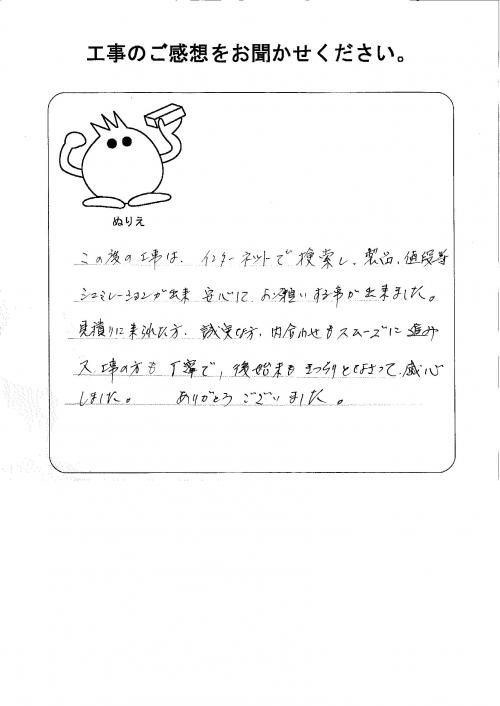 工事のご感想をお聞かせください。
ぬりえ
この度の工事は、インターネットで検索し、製品、値段等
シュミレーションが出来 安心して お願いする事が出来ました。
見積りに来られた方、誠実な方、内合わせもスムーズに進み
又 工事の方も 丁寧で、後始末も きっちりとなさって、感心
しました。 ありがとうございました。